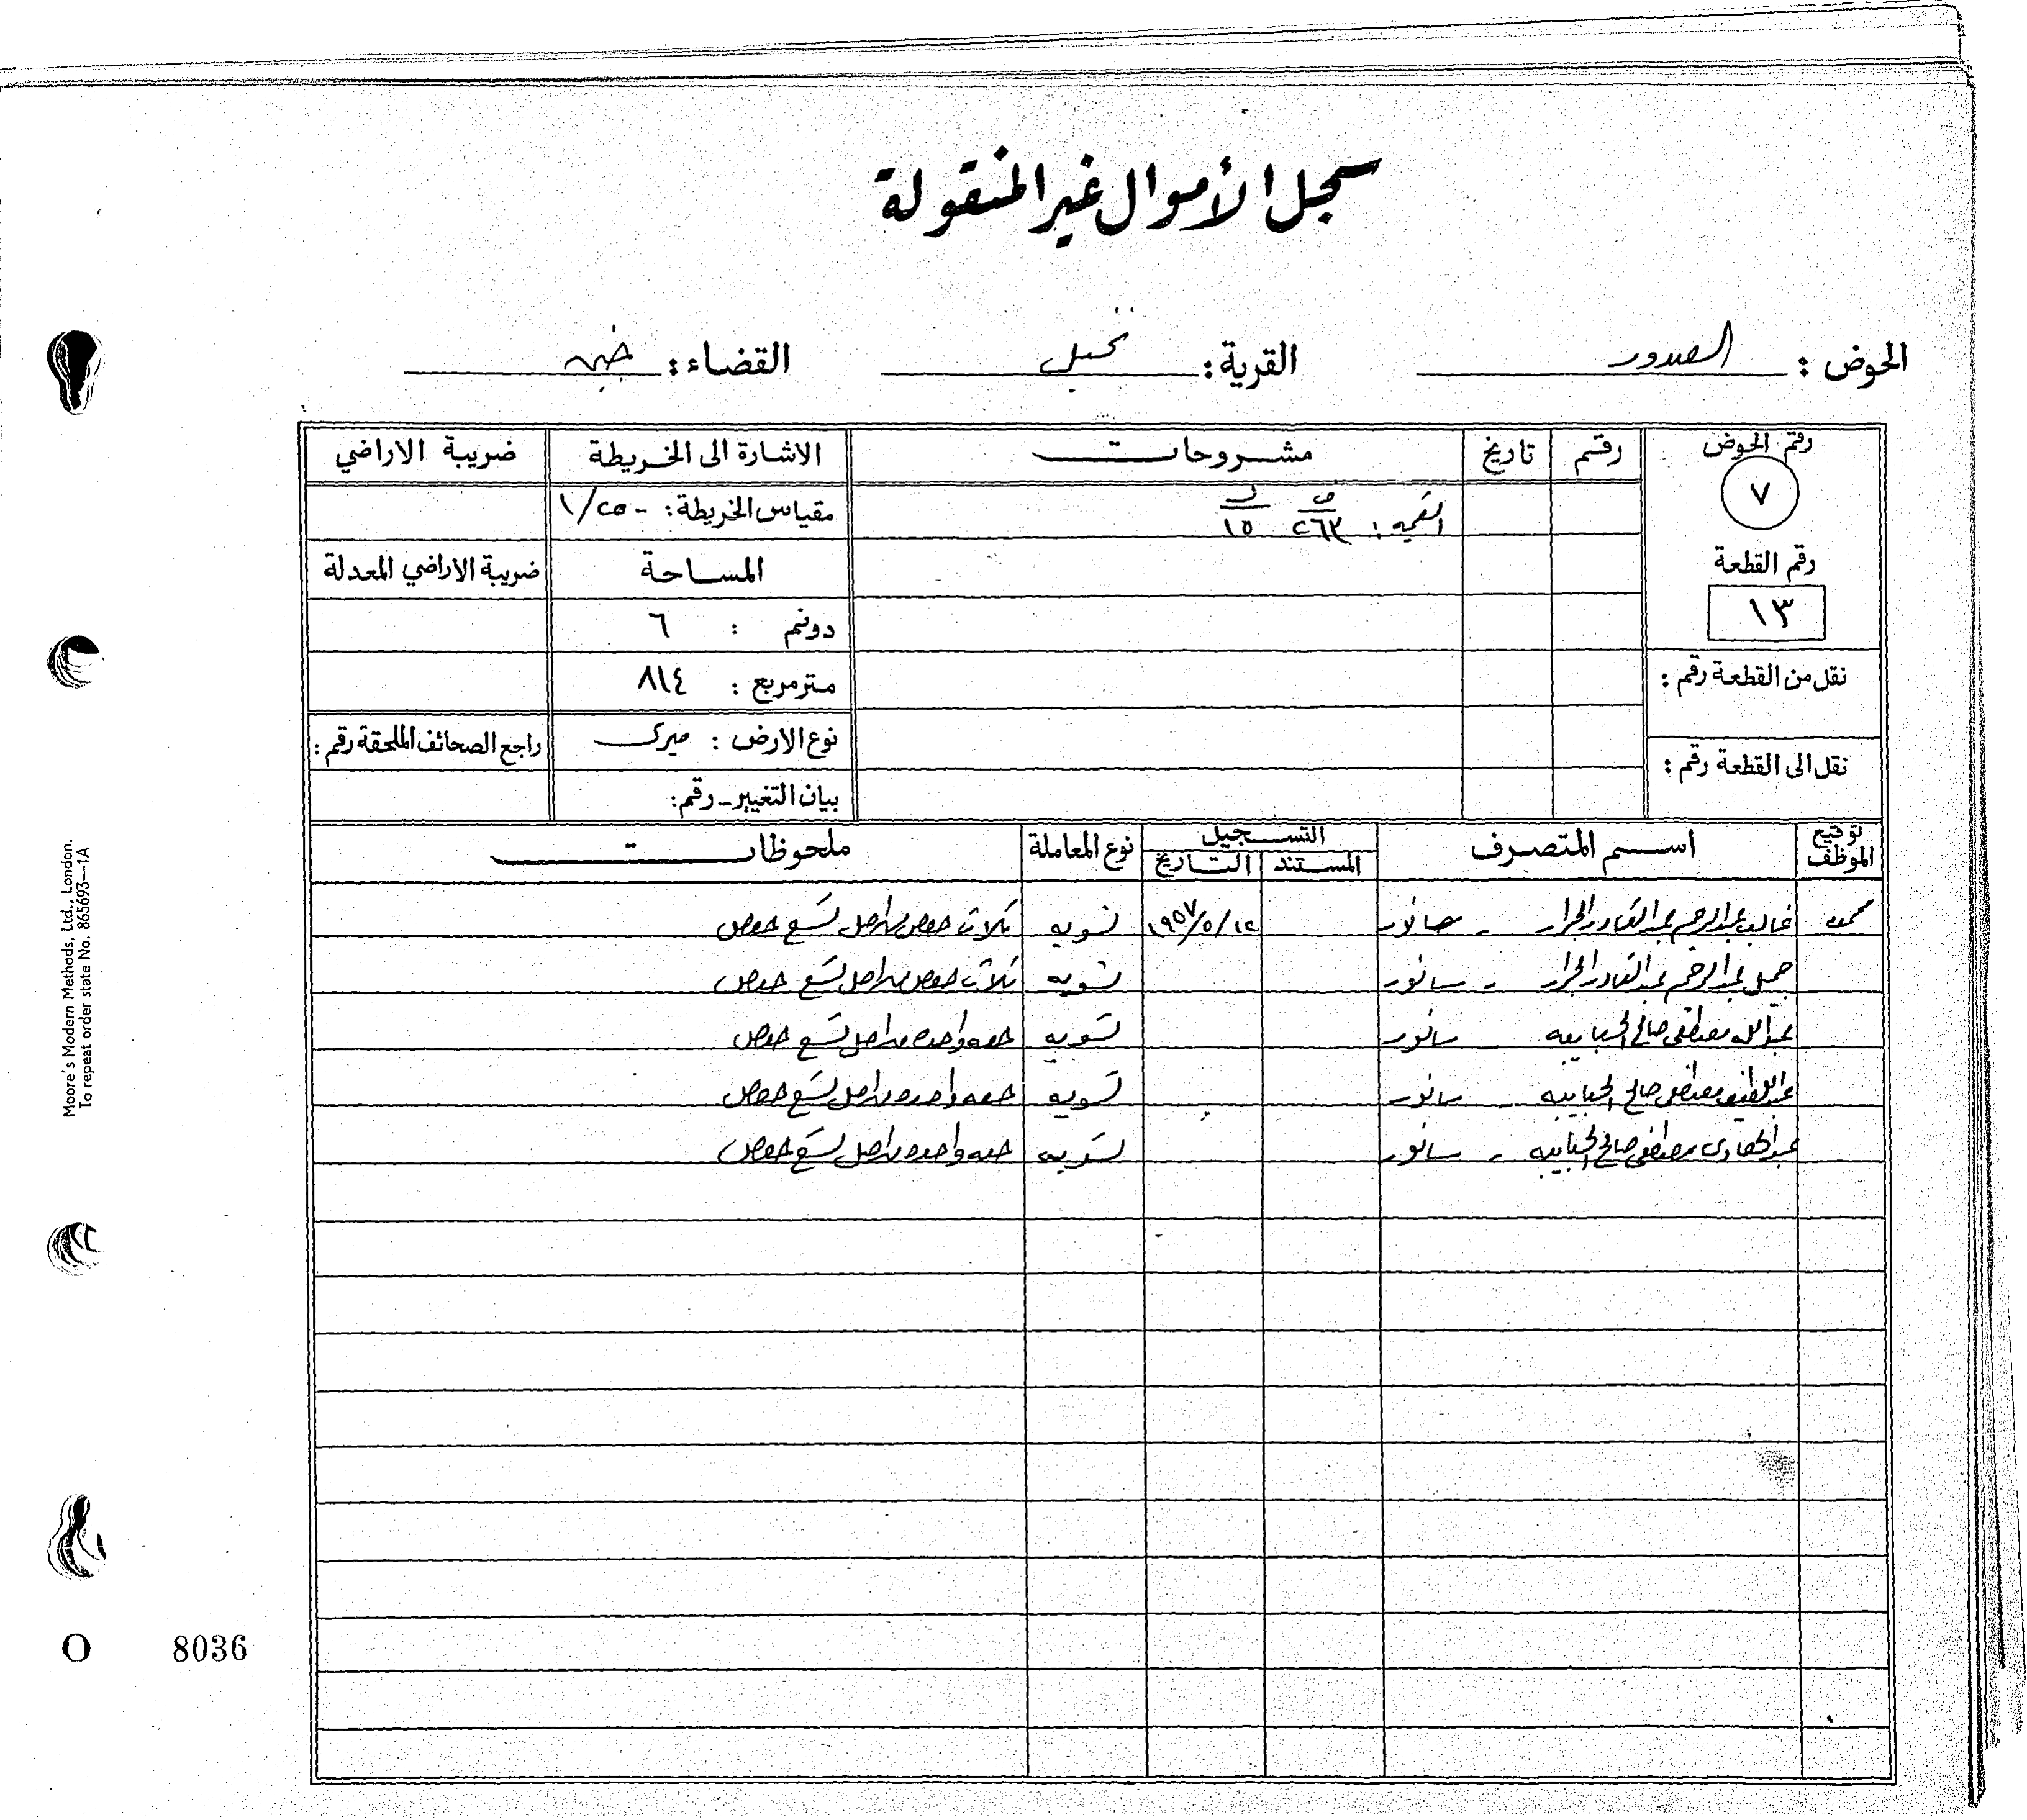 سجل الأموال غير المنقولة
الحوض : الصدور القرية : القضاء : جنين
رقم الحوض رقم تاريخ مشروحات الاشارة الى الخريطة ضريبة الاراضي
٧ القيمه : ف ٢٦٣ ل ١٥ مقياس الخريطة : ١/٢٥٠٠
رقم القطعة المساحة ضريبة الاراضي المعدلة
١٣ دونم : ٦
نقل من القطعة رقم : متر مربع : ٨١٤
نوع الارض : ميري راجع الصحائف الملحقة رقم :
نقل الى القطعة رقم :
بيان التغيير - رقم :
توقيع الموظف اسم المتصرف التسجيل نوع المعاملة ملحوظات
المستند التاريخ
محمد غالب عبد الرحيم عبد القادر الجرار - صانور ١٩٥٧/٥/١٢ تسويه ثلاث حصص من اصل تسع حصص
جميل عبد الرحيم عبد القادر الجرار - سانور تسويه ثلاث حصص من اصل تسع حصص
عبد الله مصطفى صالح الحبايبه - سانور تسويه حصه واحده من اصل تسع حصص
عبد اللطيف مصطفى صالح الحبايبه - سانور تسويه حصه واحده من اصل تسع حصص
عبد الهادي مصطفى صالح الحبايبه - سانور تسويه حصه واحده من اصل تسع حصص
Moore's Modern Methods, Ltd., London.
To repeat order state No. 865693—1A
O 8036